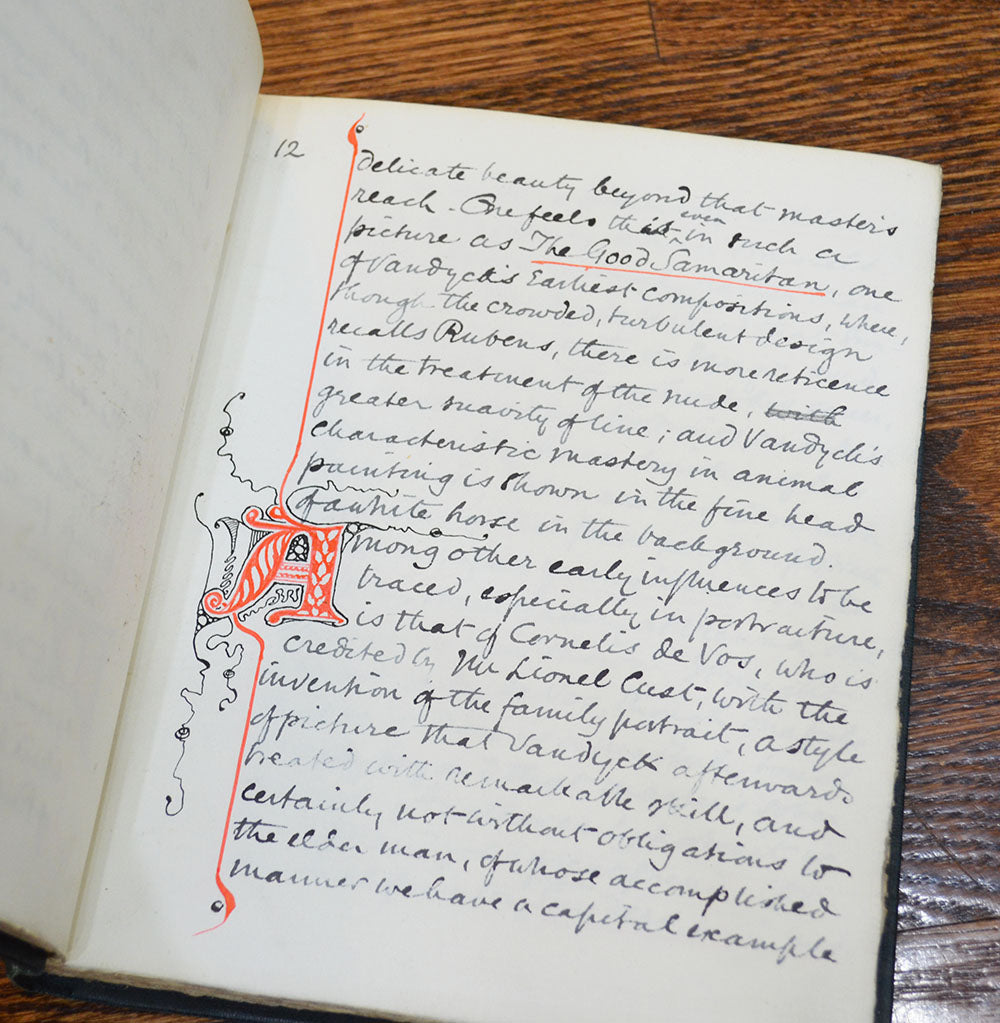 12
delicate beauty beyond that master's
reach - One feels this even in such a
picture as The Good Samaritan, one
of Vandyck's Earliest compositions, where,
though the crowded, turbulent design
recalls Rubens, there is more reticence
in the treatment of the nude, with
greater suavity of line; and Vandyck's
characteristic mastery in animal
painting is shown in the fine head
of a white horse in the background.
Among other early influences to be
traced, especially in portraiture,
is that of Cornelis de Vos, who is
credited by Mr Lionel Cust, with the
invention of the family portrait, a style
of picture that Vandyck afterwards
treated with remarkable skill, and
certainly not without obligations to
the elder man, of whose accomplished
manner we have a capital example